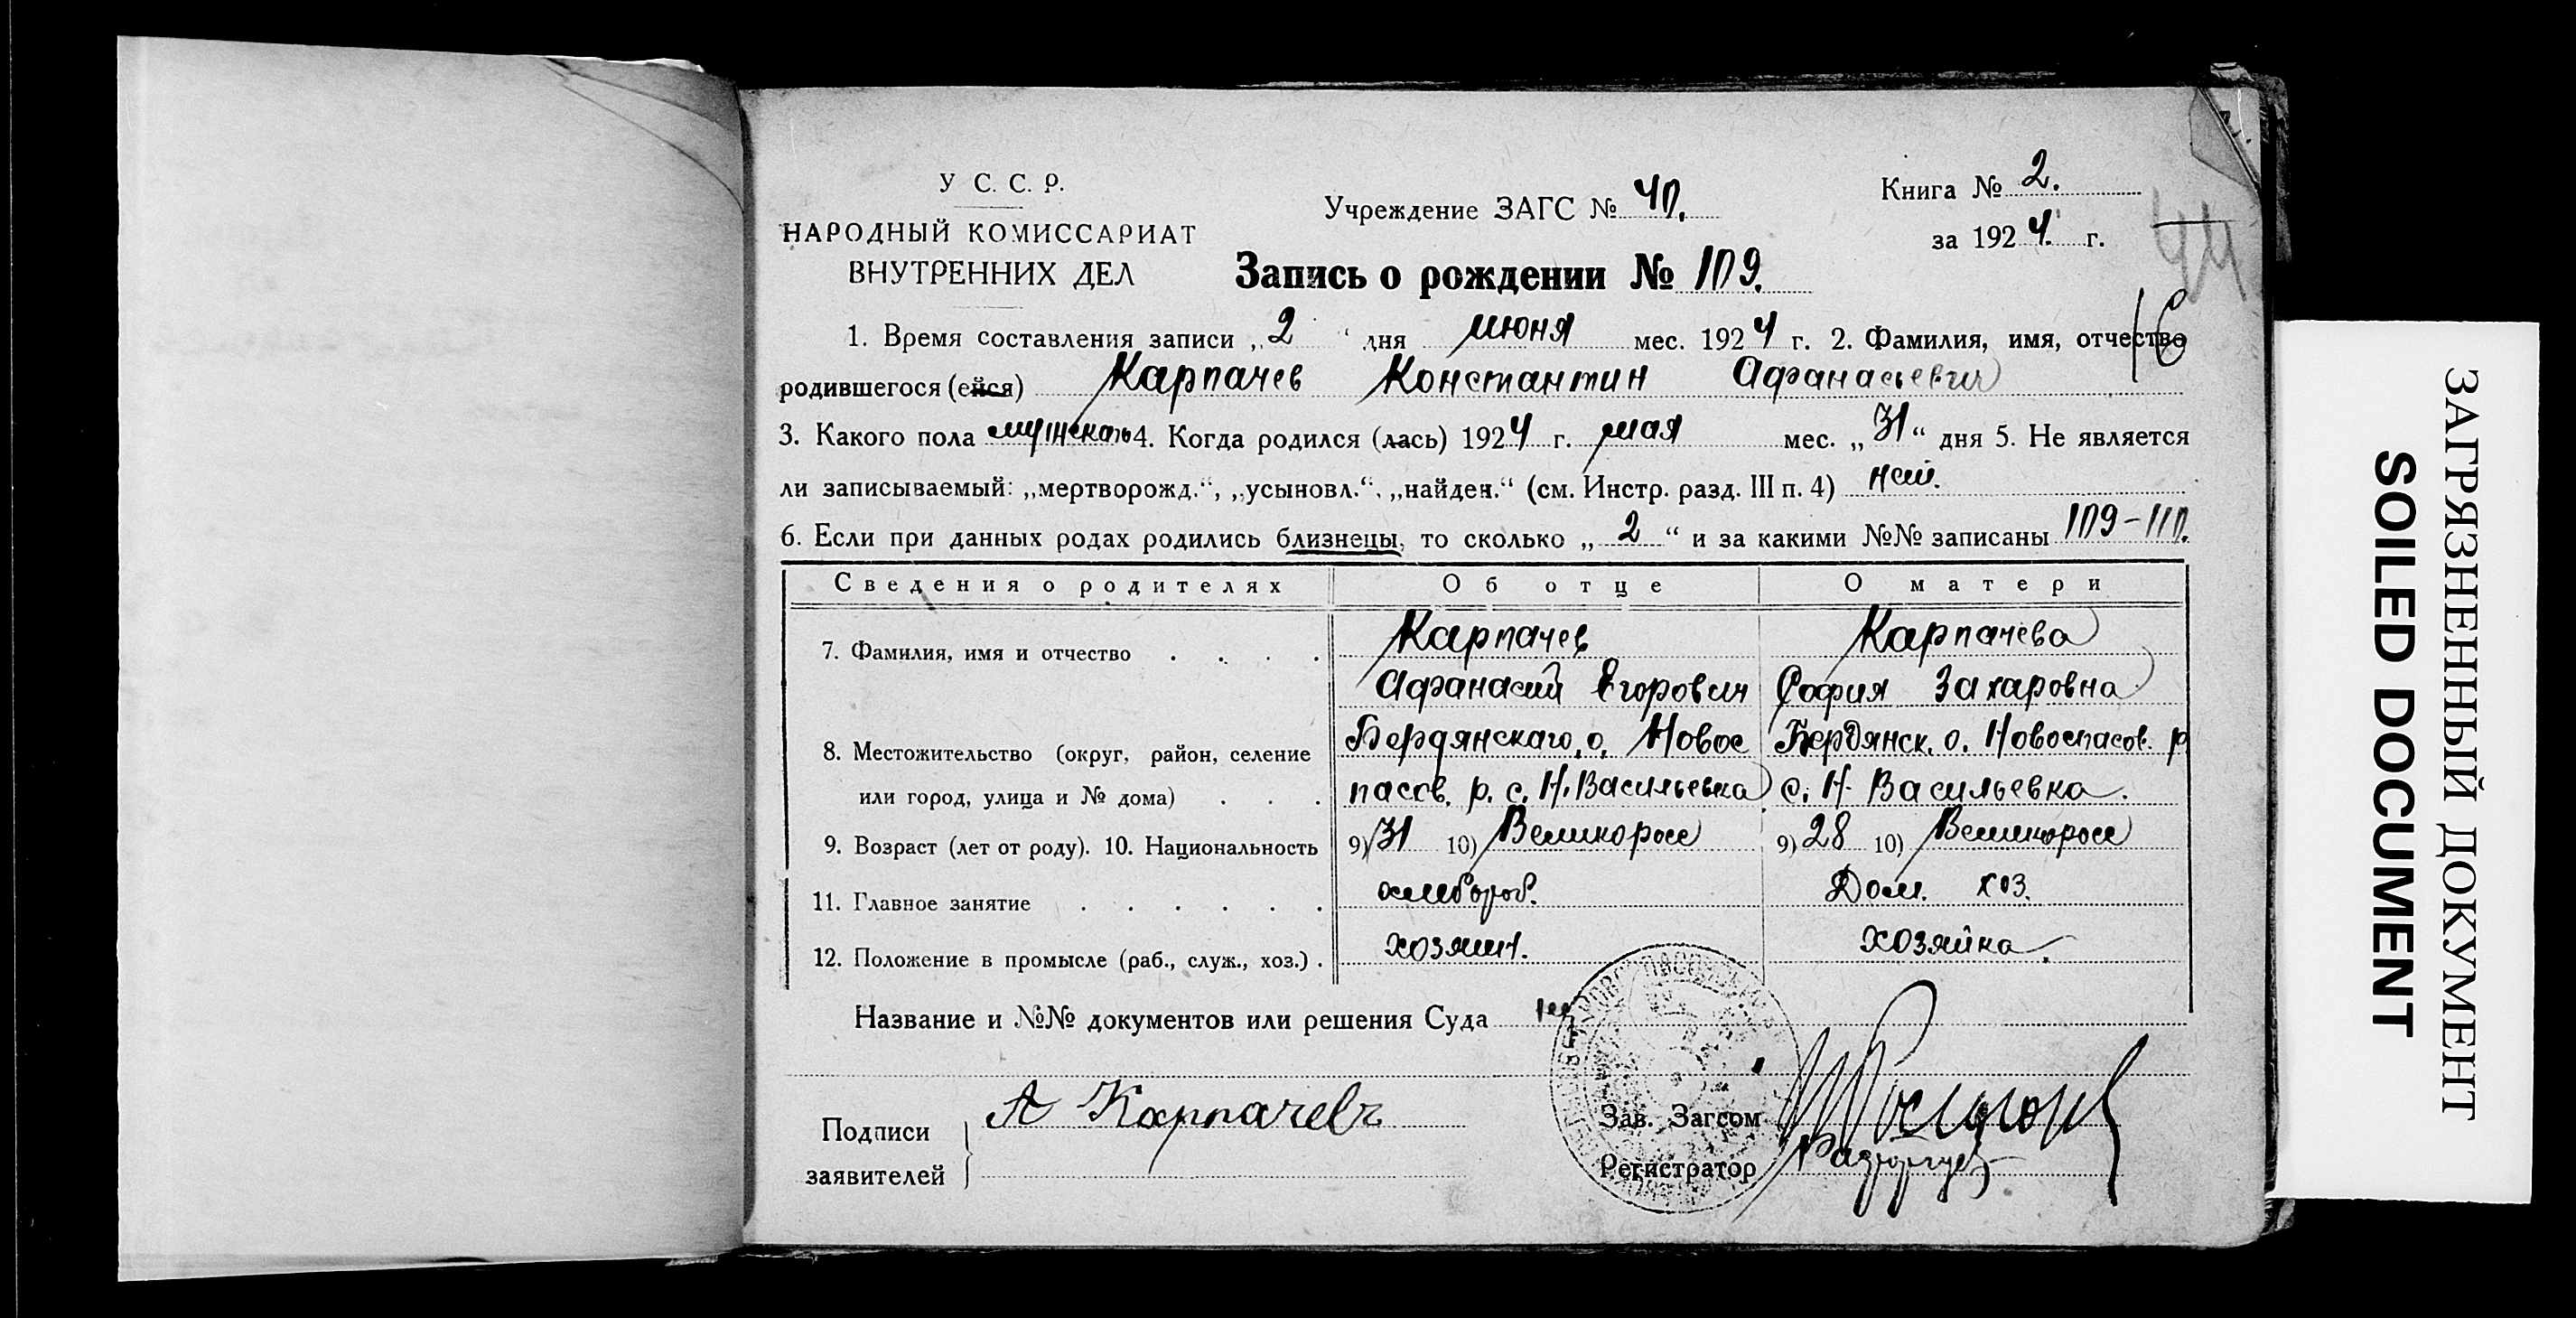 У С. С. Р.
НАРОДНЫЙ КОМИССАРИАТ
ВНУТРЕННИХ ДЕЛ
Учреждение ЗАГС № 40.
Книга № 2.
за 1924. г.
44
Запись о рождении № 109.
1. Время составления записи „2“ дня июня мес. 1924 г. 2. Фамилия, имя, отчество
родившегося (ейся) Карпачев Константин Афанасьевич
3. Какого пола мужского 4. Когда родился (лась) 1924 г. мая мес. „31“ дня 5. Не является
ли записываемый: „мертворожд.“, „усыновл.“, „найден.“ (см. Инстр. разд. III п. 4) нет.
6. Если при данных родах родились близнецы, то сколько „2“ и за какими №№ записаны 109-110.
Сведения о родителях Об отце О матери
7. Фамилия, имя и отчество . . . . Карпачев Карпачева
Афанасий Егорович София Захаровна
8. Местожительство (округ, район, селение Бердянскаго, о, Новос Бердянск. о. Новоспасов. р
или город, улица и № дома) . . . пасов. р. с. Н. Васильевка с. Н. Васильевка.
9. Возраст (лет от роду). 10. Национальность 9) 31 10) Великоросс 9) 28 10) Великоросс
11. Главное занятие . . . . . . хлебороб. Дом. хоз.
12. Положение в промысле (раб., служ., хоз.) . хозяин. хозяйка.
Название и №№ документов или решения Суда
Подписи
заявителей
А Карпачевъ
Зав. Загсом
Регистратор
ЗАГРЯЗНЕННЫЙ ДОКУМЕНТ
SOILED DOCUMENT